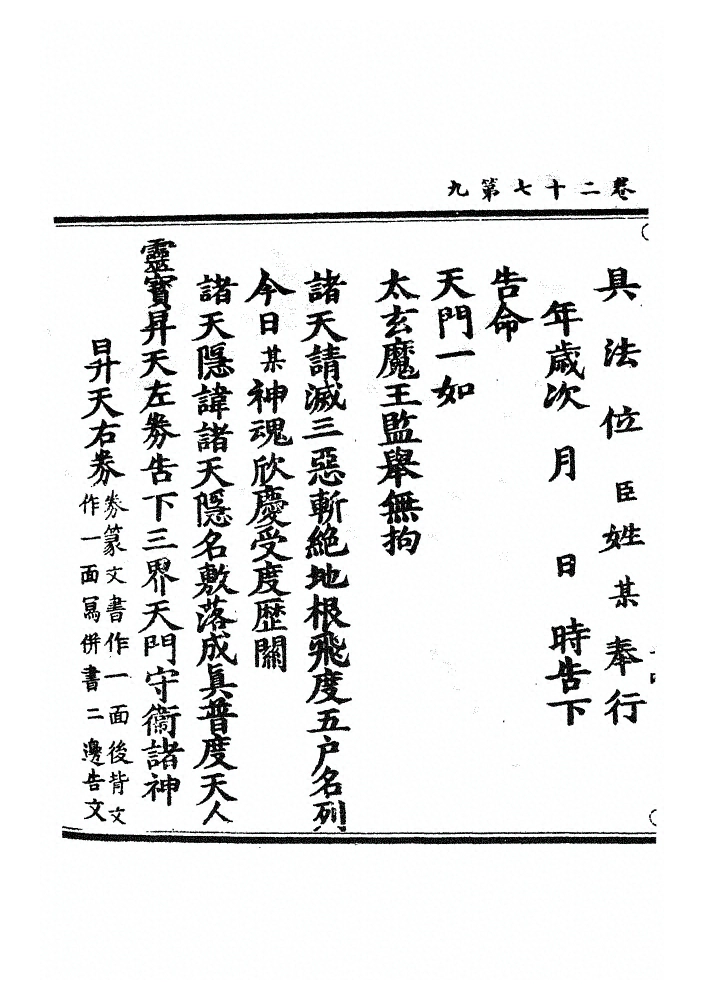 卷二十七第九
具法位臣姓某奉行
年歲次月日時告下
告命
天門一如
太玄魔王監舉無拘
諸天請滅三惡斬絶地根飛度五户名列
今日某神魂欣慶受度歴關
諸天隱諱諸天隱名敷落成眞普度天人
靈寳昇天左劵告下三界天門守衞諸神
曰升天右劵劵篆文書作一面後背文
作一面寫併書二邊告文